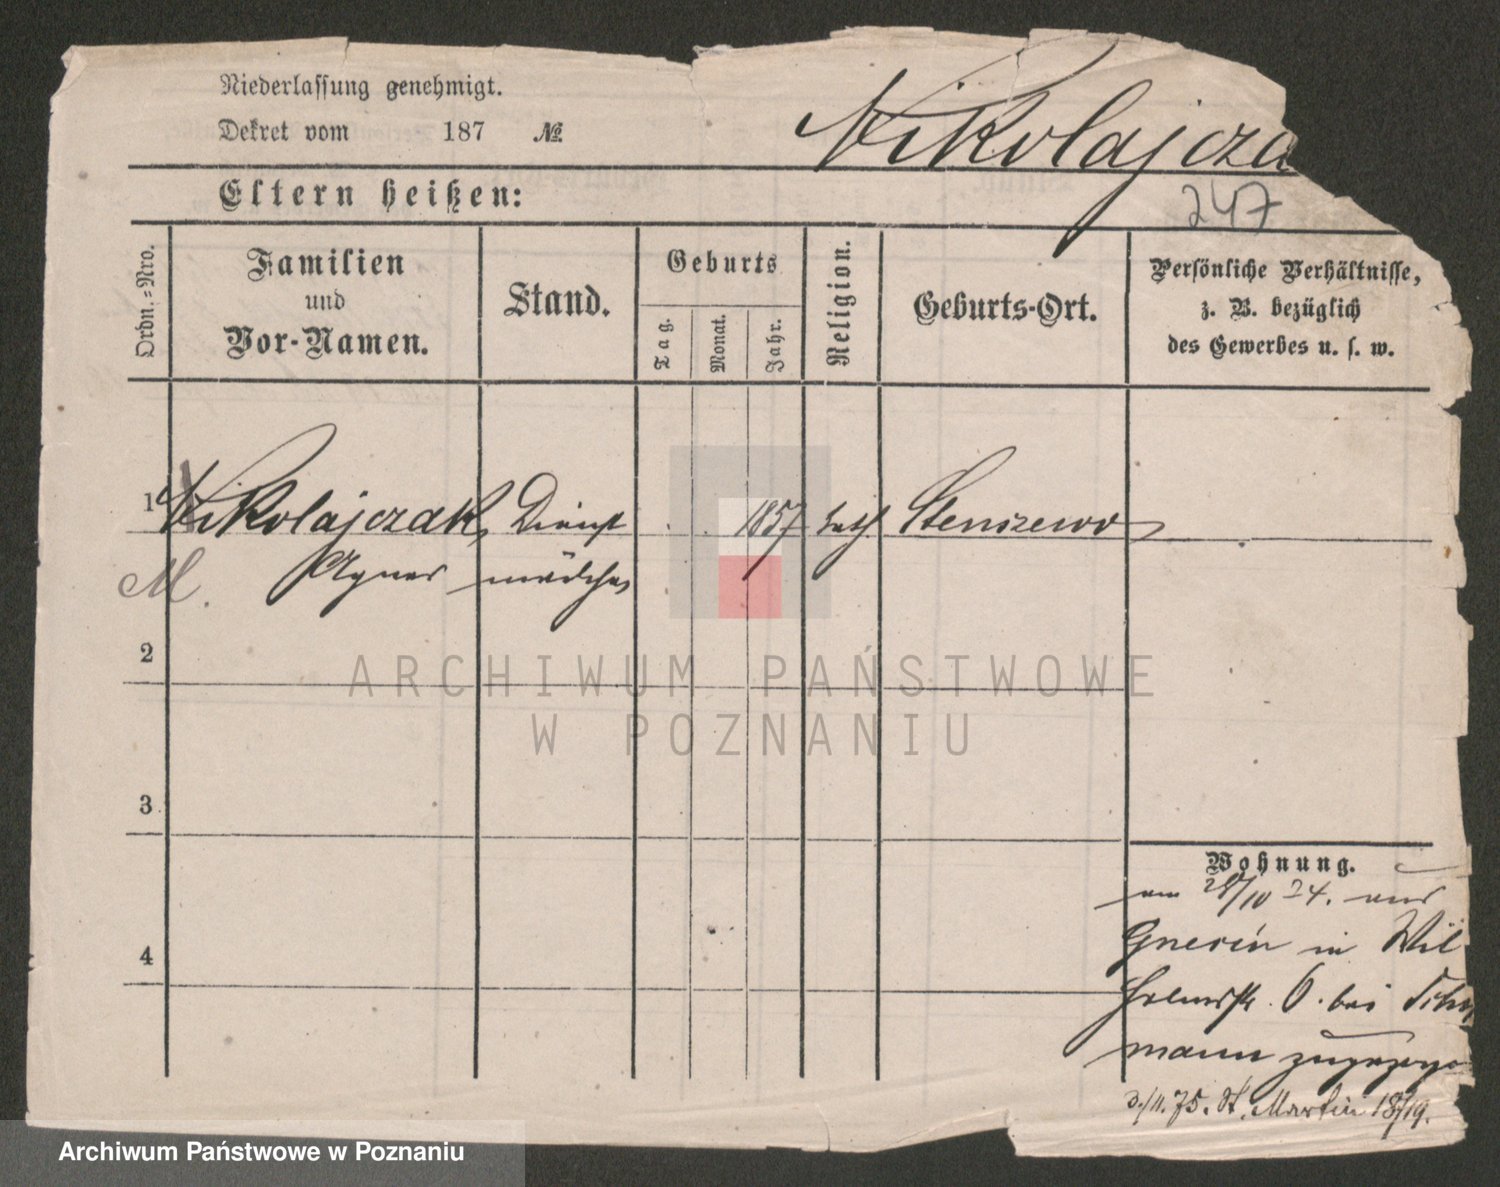 Niederlassung genehmigt.
Dekret vom 187 №.
Nikolajcza
247
Eltern heißen:
Ordn.-Nro.
Familien
und
Vor-Namen.
Stand.
Geburts
Tag.
Monat.
Jahr.
Religion.
Geburts-Ort.
Persönliche Verhältnisse,
z. B. bezüglich
des Gewerbes u. s. w.
1 Nikolajczak, Dienst 1857 kath Stenszewo
M. Agnes mädchen
2
3
4
Wohnung.
am 28/10 74. aus
Gnesen in Wil
helmstr. 6. bei
mann zugezoge
3./11. 75. St. Martin 18/19.
ARCHIWUM PAŃSTWOWE
W POZNANIU
Archiwum Państwowe w Poznaniu